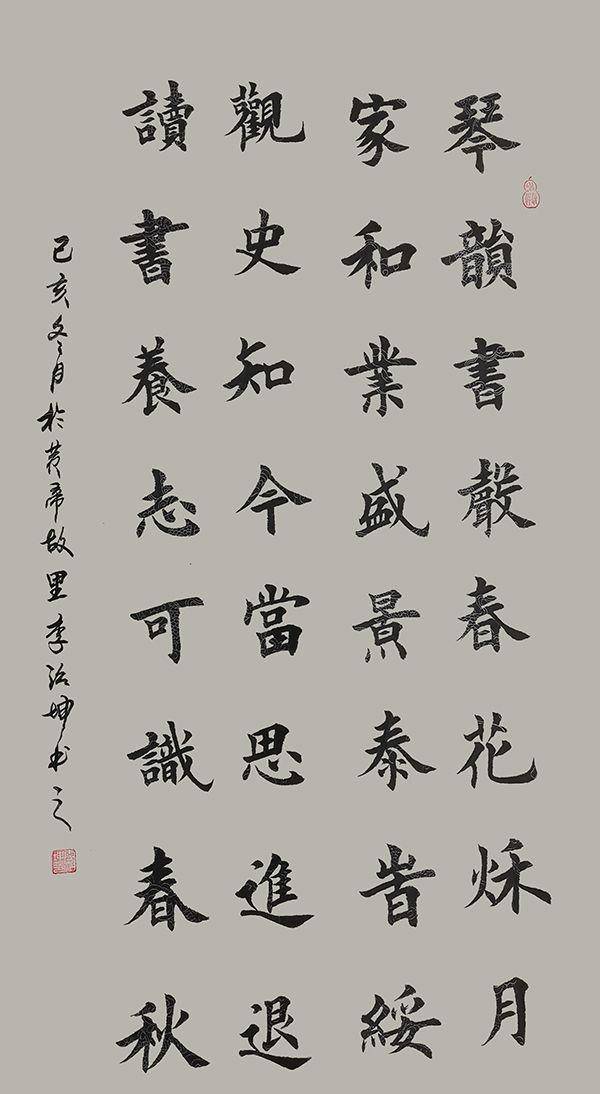 琴韻書聲春花秌月
家和業盛景泰旹綏
觀史知今當思進退
讀書養志可識春秋
己亥冬月於黄帝故里李治坤书之